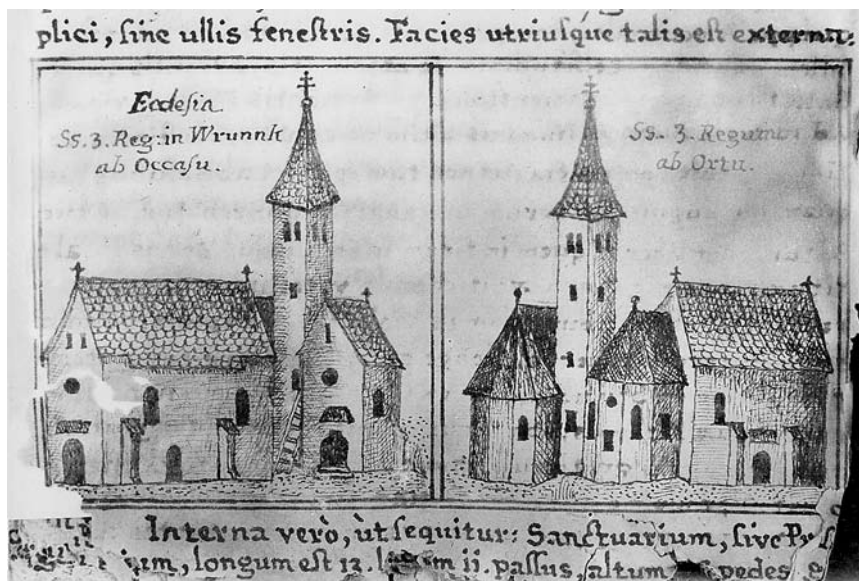 plici, sine ullis fenestris. Facies utriusque talis est externa:
Ecclesia
Ss. 3. Reg: in Wrunnk
ab Occasu.
Ss. 3. Regum
ab Ortu.
Interna verò, ùt sequitur: Sanctuarium, sive
longum est 12. ii. passus, altum pedes